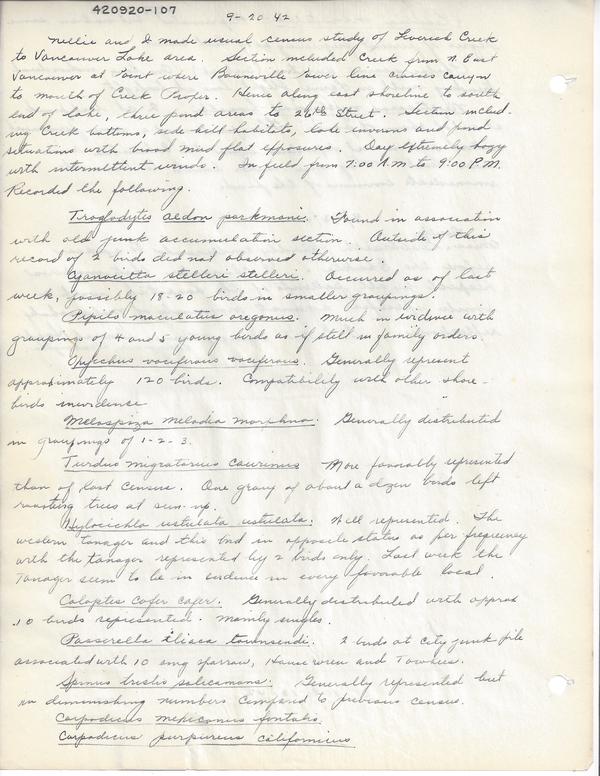 420920-107
9-20 42
Nellie and I made usual census study of Leverich Creek
to Vancouver Lake area. Section included Creek from N. East
Vancouver at Point where Bonneville Power line crosses canyon
to mouth of Creek Proper. Hence along east shoreline to south
end of lake, three pond areas to 26th Street. Section includ-
ing Creek bottoms, side hill habitats, lake environs and pond
situations with broad mud flat exposures. Day extremely hazy
with intermittent winds. In field from 7:00 A.M to 9:00 P.M.
Recorded the following.
Troglodytis aedon parkmani. Found in association
with old junk accumulation section. Outside of this
record of 2 birds did not observed otherwise.
Cyanocitta stelleri stelleri. Occurred as of last
week, possibly 18-20 birds in smaller groupings.
Pipilo maculatus oregonus. Much in evidence with
groupings of 4 and 5 young birds as if still in family orders.
Oxyechus vociferous vociferous. Generally represent
approximately 120 birds. Compatibility with other shore-
birds in evidence
Melospiza melodia morphna. Generally distributed
in groupings of 1-2-3.
Turdus migratorius caurinus More favorably represented
than of last census. One group of about a dozen birds left
roosting trees at sun-up.
Hylocichla ustulata ustulata. Well represented. The
western tanager and this bird in opposite status as per frequency
with the tanager represented by 2 birds only. Last week the
Tanager seem to be in evidence in every favorable local.
Colaptes cafer cafer. Generally distributed with approx
10 birds represented. Mainly singles.
Passerella iliaca townsendi. 2 birds at City junk pile
associated with 10 song sparrow, House wren and Towhees.
Spinus tristis salicamans. Generally represented but
in diminishing numbers compared to previous census.
Carpodicus mexicanus fontalis
Carpodicus purpureus californicus